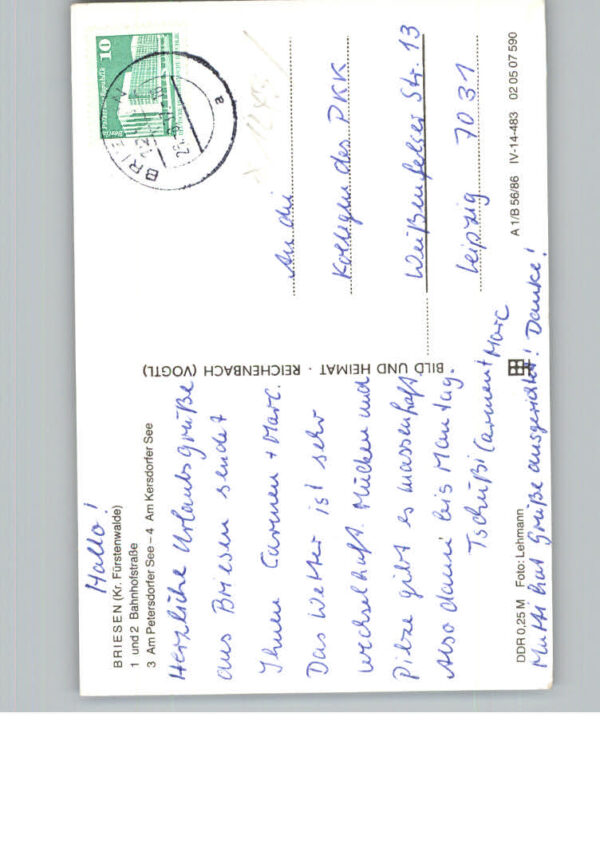 Hallo!
BRIESEN (Kr. Fürstenwalde)
1 und 2 Bahnhofstraße
3 Am Petersdorfer See – 4 Am Kersdorfer See
Herzliche Urlaubsgrüße
aus Briesen sendet
Ihnen Carmen + Marc.
Das Wetter ist sehr
wechselhaft. Mücken und
Pilze gibt es massenhaft.
Also dann bis Montag.
Tschüßi Carmen + Marc
DDR 0,25 M Foto: Lehmann
Mutti hat Grüße ausgerichtet! Danke!
BILD UND HEIMAT · REICHENBACH (VOGTL)
10
BRIESEN
a
An die
Kollegen des PKK
Weißenfelser Str. 13
Leipzig 7031
A 1/B 56/86 IV-14-483 02 05 07 590